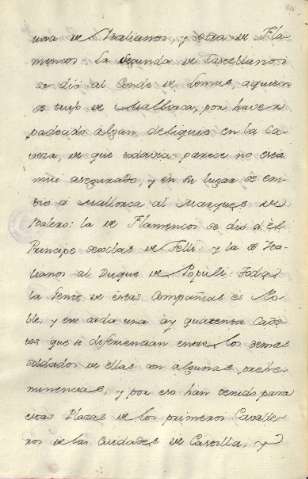 una de Italianos, y otra de Fla-
mencos. La segunda de Castellanos
se dió al Conde de Lemus, a quien
se truxo de Mallorca, por haver
padecido algun deliquio en la Ca-
veza, de que todavia parece no está
mui asegurado, y en su lugar se em-
bió á Mallorca al Marques de
la de Flamencos se dió al
Principe de Telli: y la de Ita-
lianos al Duque de Populi. Toda
la Gente de estas Compañias es No-
ble, y en cada una ay quarenta Cade-
tes que se diferencian entre los demas
soldados de ellas con algunas prehe-
minencias, y por eso han venido para
estas Plazas de los primeros Cavalle-
ros de las Ciudades de Castilla, y